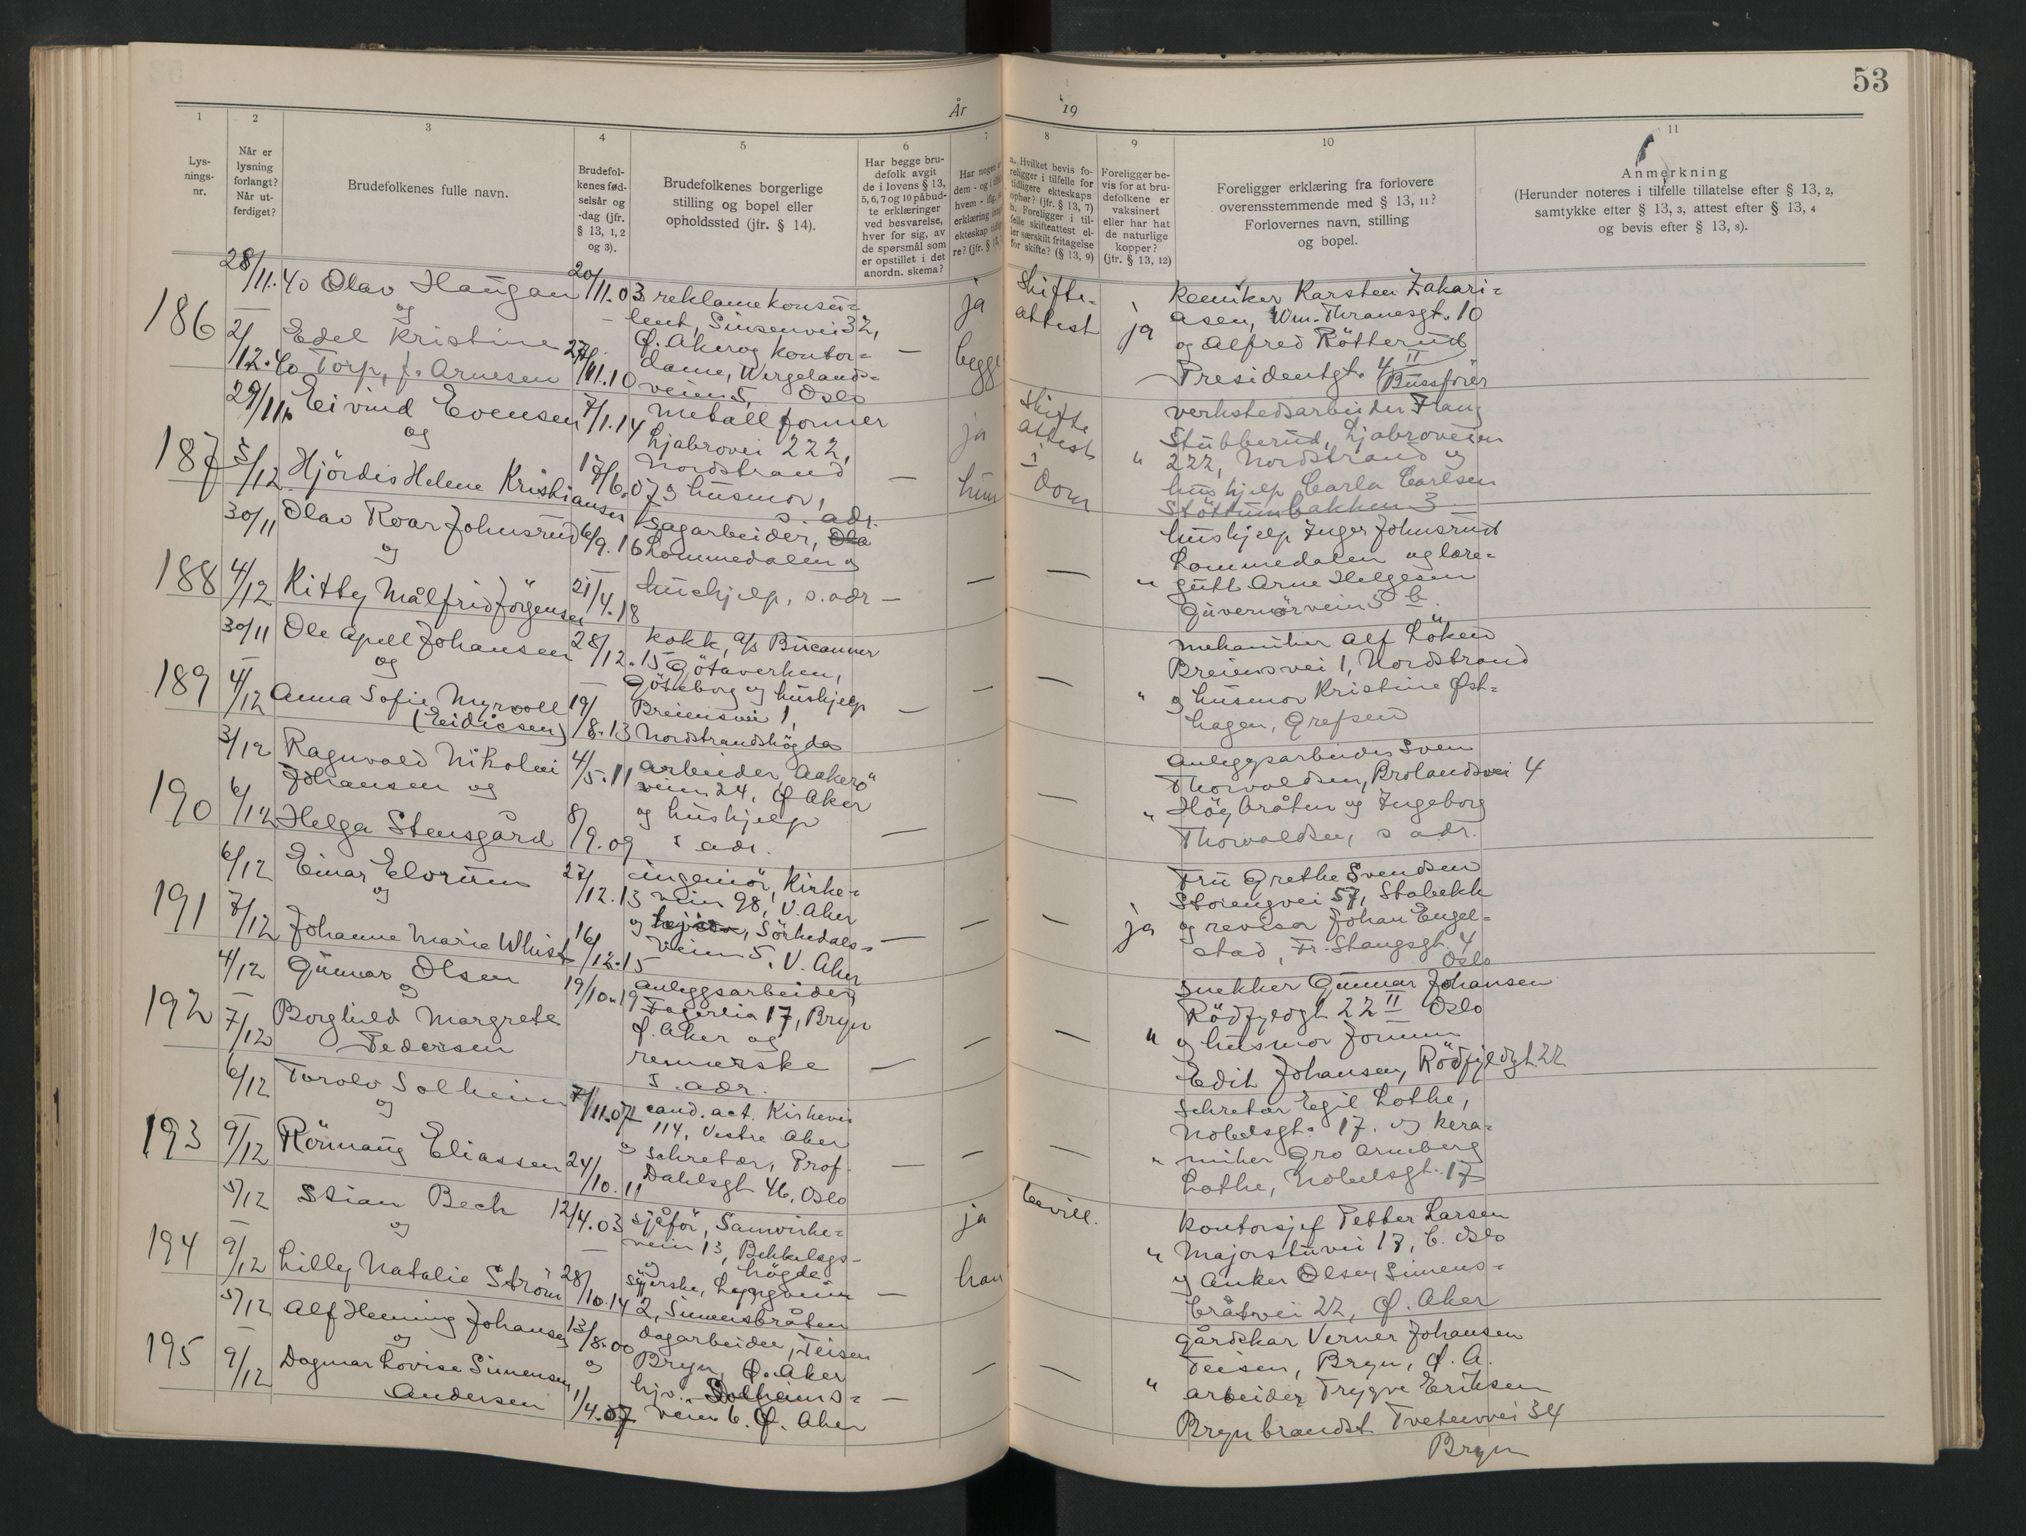 53
År
19
1
2
3
4
5
6
7
8
9
10
11
Lys-
nings-
nr.
Når er
lysning
forlangt?
Når ut-
ferdiget?
Brudefolkenes fulle navn.
Brudefol-
kenes fød-
selsår og
-dag (jfr.
§ 13, 1, 2
og 3).
Brudefolkenes borgerlige
stilling og bopel eller
opholdssted (jfr. § 14).
Har begge bru-
defolk avgit
de i lovens § 13,
5, 6, 7 og 10 påbud-
te erklæringer
ved besvarelse,
hver for sig, av
de spørsmål som
er opstillet i det
anordn. skema?
Har nogen
dem - og i
hvem -
erklæring
ekteskap
re? (jfr. §
a. Hvilket bevis fo-
religger i tilfelle for
tidligere ekteskaps
ophør? (jfr. § 13, 7)
b. Foreligger i til-
felle skifteattest el-
ler særskilt fritagelse
for skifte? (§ 13, 9)
Foreligger be-
vis for at bru-
defolkene er
vaksinert
eller har hat
de naturlige
kopper?
(jfr. § 13, 12)
Foreligger erklæring fra forlovere
overensstemmende med § 13, 11?
Forlovernes navn, stilling
og bopel.
Anmerkning
(Herunder noteres i tilfelle tillatelse efter § 13, 2,
samtykke efter § 13, 3, attest efter § 13, 4
og bevis efter § 13, 8).
186
28/11.40 Olav Haugan
og
2/12.40 Edel Kristine
Torp, f. Arnesen
20/11.03
27/11.10
reklamekonsu-
lent, Sinsenvei 32,
Ø. Aker og kontor-
dame, Wergelands-
veien 5, Oslo
—
ja
begge
Skifte-
attest
ja
kemiker Karsten Zakari-
asen, Wm. Thranesgt. 10
og Alfred Rötterud
Presidentgt. 4 II
Bussfører
187
29/11 Eivind Evensen
og
5/12 Hjördis Helene Kristiansen
7/1.14
17/6.07
Metallformer
Ljabrovei 222,
Nordstrand
og husmor,
s. adr.
—
ja
hun
Skifte
attest
i
Dom
"
verkstedsarbeider Haug
Stubberud, Ljabroveien
222, Nordstrand og
hushjelp Carla Carlsen
Støttumbakken 3
188
30/11 Olav Roar Johnsrud
og
4/12 Kitty Målfrid Jörgensen
6/9.16
21/4.18
sagarbeider,
Lommedalen og
hushjelp, s. adr
—
—
—
"
hushjelp Inger Johnsrud
Lommedalen og lære-
gutt Arne Helgesen
Guvernörvein 5 b.
189
30/11 Ole Apell Johansen
og
4/12 Anna Sofie Myrvoll
(Eidicsen)
28/12.15
19/8.13
kokk, a/s Bucanner
Götaverken,
Göteborg og hushjelp
Breiensvei 1,
Nordstrandshögda
—
—
—
"
mekaniker Alf Löken
Breiensvei 1, Nordstrand
og husmor Kristine Øst-
hagen, Grefsen
190
3/12 Ragnvald Nikolai
Johansen og
6/12 Helga Stensgård
4/5.11
8/9.09
arbeider Aakerö
veien 24, Ø Aker
og hushjelp
s adr.
—
—
"
Anleggsarbeider Sven
Thorvaldsen, Brolandsvei 4
Höybråten og Ingeborg
Thorvaldsen, s adr.
191
6/12 Einar Elvrum
og
7/12 Johanne Marie Whist
27/12.13
16/12.15
ingeniör, Kirke-
veien 98, V. Aker
og Sörkedals-
veien 5, V. Aker
—
—
—
ja
Fru Grethe Svendsen
Stoiengvei 57, Stabekk
og revisor Johan Engel-
stad, Fr. Stangsgt. 4
Oslo
192
4/12 Gunnar Olsen
og
7/12 Borghild Margrete
Pedersen
19/10.19
anleggsarbeider
Fagerlia 17, Bryn
Ø. Aker og
s. adr.
—
—
—
"
snekker Gunnar Johansen
Rödfyldgt 22 II Oslo
og husmor
Edit Johansen, Rödfyldgt. 22
193
6/12 Torolv Solheim
og
9/12 Rönnaug Eliassen
7/11.07
24/10.11
cand. act. Kirkevei
114, Vestre Aker
og sekretær, Prof.
Dahlsgt 46, Oslo
—
—
—
"
sekretær Egil Lothe,
Nobelsgt. 17. og kera-
miker Gro Arneberg
Lothe, Nobelsgt. 17
194
5/12 Stian Bech
og
9/12 Lilly Natalie Ström
12/4.03
28/10.14
sjåför, Samvirke-
veien 13, Bekkelags-
og högda
syerske, Lyngveien
2, Simensbråten
—
ja
han
bevill.
"
kontorsjef Petter Larsen
Majorstuvei 17, C. Oslo
og Anker Olsen, Simens-
bråtvei 22, Ø. Aker
195
5/12 Alf Henning Johansen
og
9/12 Dagmar Lovise Simensen
Andersen
13/8.00
og
1/4.07
Dagarbeider, Teisen
Bryn, Ø. Aker
hjv. Solheims-
veien 6. Ø. Aker
—
—
—
"
gårdskar Verner Johansen
Teisen, Bryn, Ø. A.
arbeider Trygve Eriksen
Bryn brandst Tvetenvei 34
Bryn